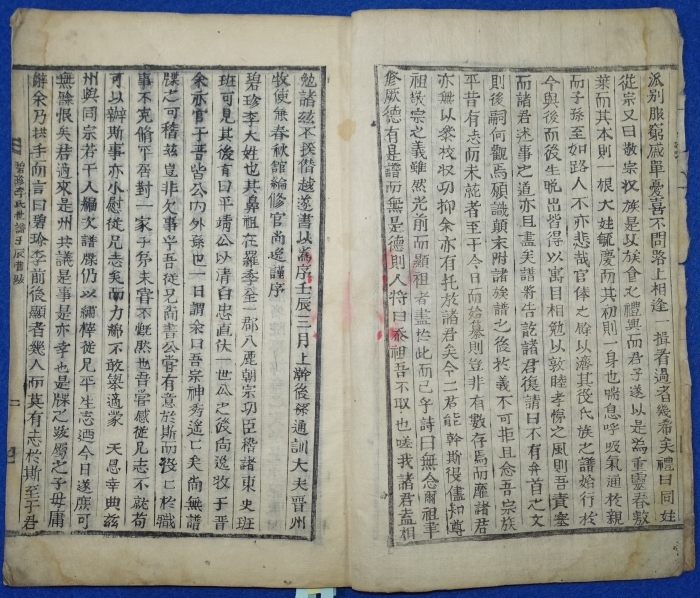 派別服窮戚單憂喜不問路上相逢一揖者過者幾希矣禮曰同姓
從宗又曰敬宗收族是以族食之禮興而君子遂以是為重靈春敷
葉而其本則一根大姓毓慶而其初則一身也喘息呼吸氣通於親
而子孫至如路人不亦悲哉官俸之餘以濟其役氏族之譜始行於
今與後而後生晩出皆得以寓目相勉以敦睦孝悌之風則吾責塞
而諸君述事之道亦且盡矣譜將告訖諸君復請曰不有弁首之文
則後嗣何觀焉願識顛末附諸族譜之後於義不可拒且念吾宗族
平昔有志而未就者至于今日而始纂則豈非有數存焉而靡諸君
亦無以衆校收功抑余亦有托於諸君矣今二君能幹斯役儘知尊
祖敬宗之義雖然光前而顯祖者盡於此而已乎詩曰無念爾祖聿
修厥德有是譜而無是德則人將曰忝祖吾不取也嗟我諸君盍相
勉諸玆不揆僭越遂書以為序壬辰三月上澣後孫通訓大夫晋州
牧使無春秋舘編修官尚逸謹序
碧珍李大姓也其鼻祖在羅季全一郡八歷朝宗功臣稽諸東史班
班可見其後有曰平靖公以清白忠直伏一世公之後尚逸牧于晋
余亦官于晋皆公内外孫也一日謂余曰吾宗神秀遠已矣尚無譜
牒之可稽玆豈非欠事乎吾從兄尚書公嘗有意於斯而役已於職
事不克脩平居對一家子弟未嘗不慨然也吾嘗感從兄志不就苟
可以辦斯事亦小慰從兄志矣而力綿不敢擧適蒙 天恩幸典玆
州與同宗若干人編次譜牒仍以鋟梓從兄平生志迺今日遂庶可
無餘恨矣君適來是州共議是事是亦幸也是牒之敍屬之子毋庸
辭余乃拱手而言曰碧珍李前後顯者幾人而莫有志於斯至于君
碧珍李氏世譜壬辰舊跋
二